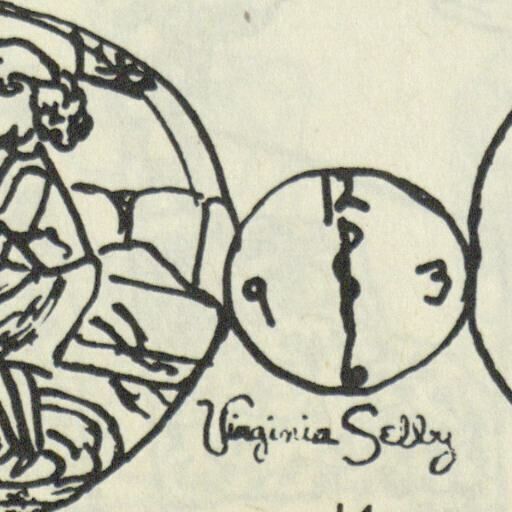 12
9 3
6
Virginia Selby